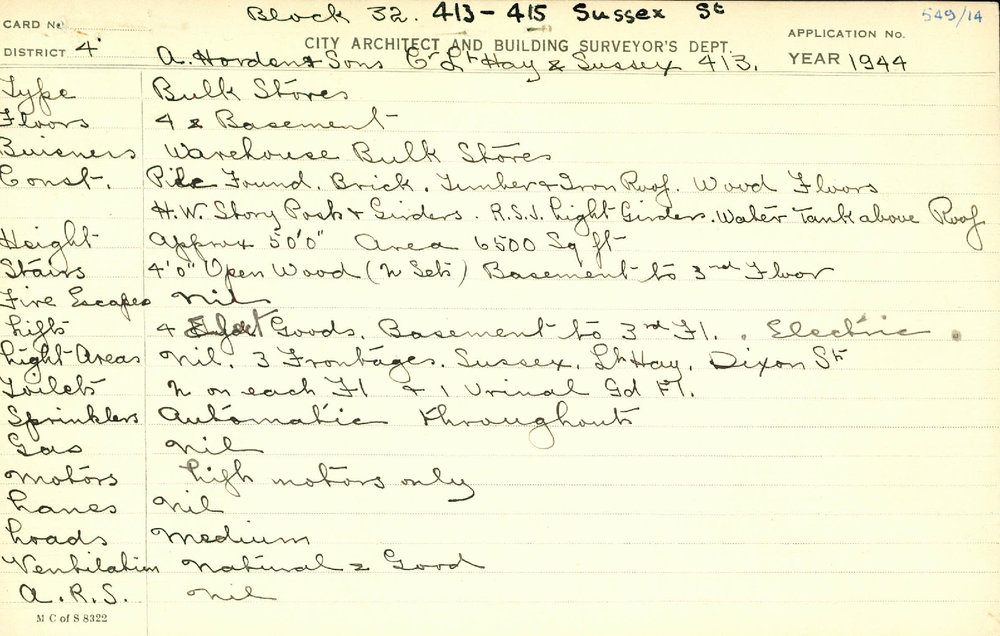 Block 32. 413-415 Sussex St 549/14
CARD No. APPLICATION No.
DISTRICT 4 CITY ARCHITECT AND BUILDING SURVEYOR'S DEPT. YEAR 1944
A. Horden & Sons Cr Lt Hay & Sussex 413.
Type Bulk Stores
Floors 4 & Basement
Buisners Warehouse Bulk Stores
Const. Pile Found. Brick. Timber & Iron Roof. Wood Floors
H.W. Story Posts & Girders. R.S.J. Light Girders. Water Tank above Roof
Height Approx 50'0" Area 6500 Sq ft
Stairs 4'0" Open Wood (2 Sets) Basement to 3rd Floor
Fire Escapes Nil
Lifts 4 Goods. Basement to 3rd Fl. . Electric .
Light Areas Nil. 3 Frontages. Sussex. Lt Hay. Dixon St
Toilets 2 on each Fl & 1 Urinal Gd Fl.
Sprinklers Automatic throughout
Gas Nil
Motors Lift motors only
Lanes Nil
Loads Medium
Ventilation Natural & Good
A.R.S. Nil
M C of S 8322